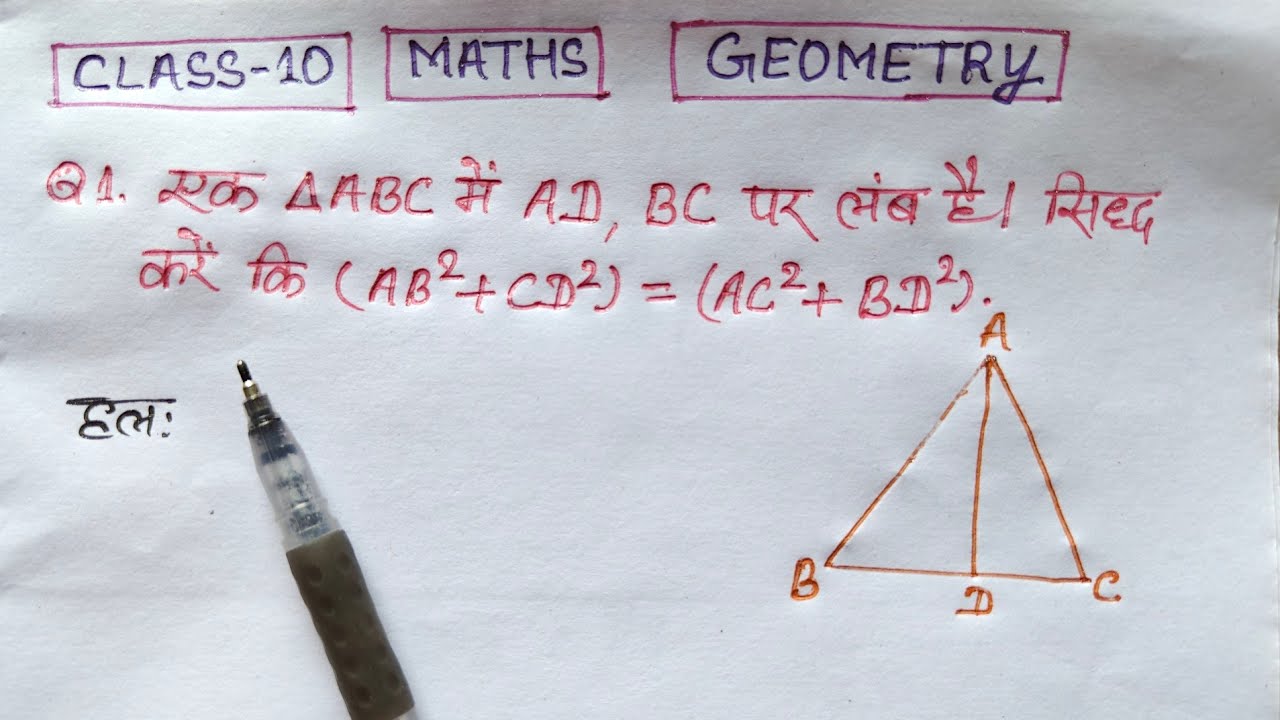 CLASS-10 MATHS GEOMETRY
Q1. एक ΔABC में AD, BC पर लंब है। सिद्ध
करें कि (AB²+CD²) = (AC²+ BD²).
A
हल:
B
D
C